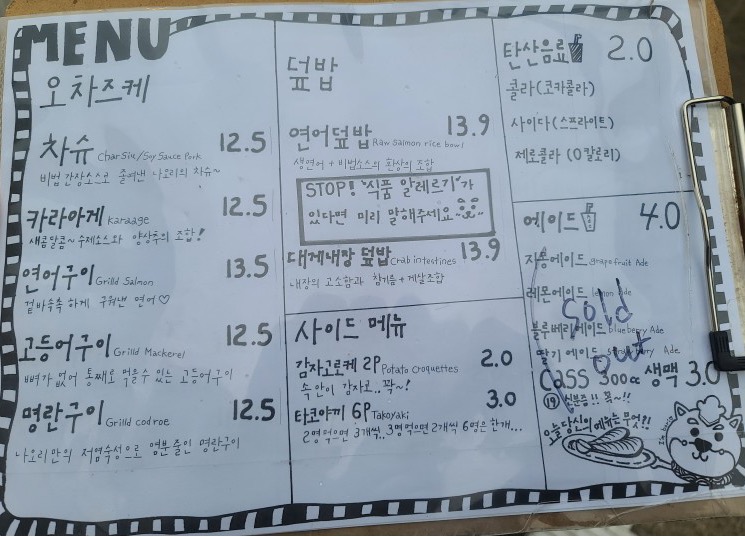 MENU
오차즈케
차슈 Charsiu/Soy Sauce Pork 12.5
비법 간장소스로 졸여낸 나요리의 차슈~
카라아게 Karaage 12.5
새콤달콤~ 수제소스와 양상추의 조합!
연어구이 Grilld Salmon 13.5
겉바속촉 하게 구워낸 연어♡
고등어구이 Grilld Mackerel 12.5
뼈가 없어 통째로 먹을수 있는 고등어구이
명란구이 Grilld codroe 12.5
나요리만의 저염숙성으로 염분 줄인 명란구이
덮밥
연어덮밥 Raw Salmon rice bowl 13.9
생연어 + 비법소스의 환상의 조합
STOP! "식품 알레르기"가
있다면 미리 말해주세요~
대게내장 덮밥 Crab intestines 13.9
내장의 고소함과 참기름 + 게살조합
사이드 메뉴
감자고로케 2P Potato Croquettes 2.0
속 안이 감자로..꽉~!
타코야끼 6P Takoyaki 3.0
2명먹으면 3개씩.. 3명먹으면 2개씩 6명은 한개...
탄산음료 2.0
콜라 (코카콜라)
사이다 (스프라이트)
제로콜라 (0칼로리)
에이드 4.0
자몽에이드 grapefruit Ade
레몬에이드 lemon Ade
블루베리에이드 blueberry Ade
딸기 에이드 Ade
Sold
out
CASS 300cc 생맥 3.0
19 신분증!! 꼭~!!
오늘 당신의 메뉴는 무엇?!